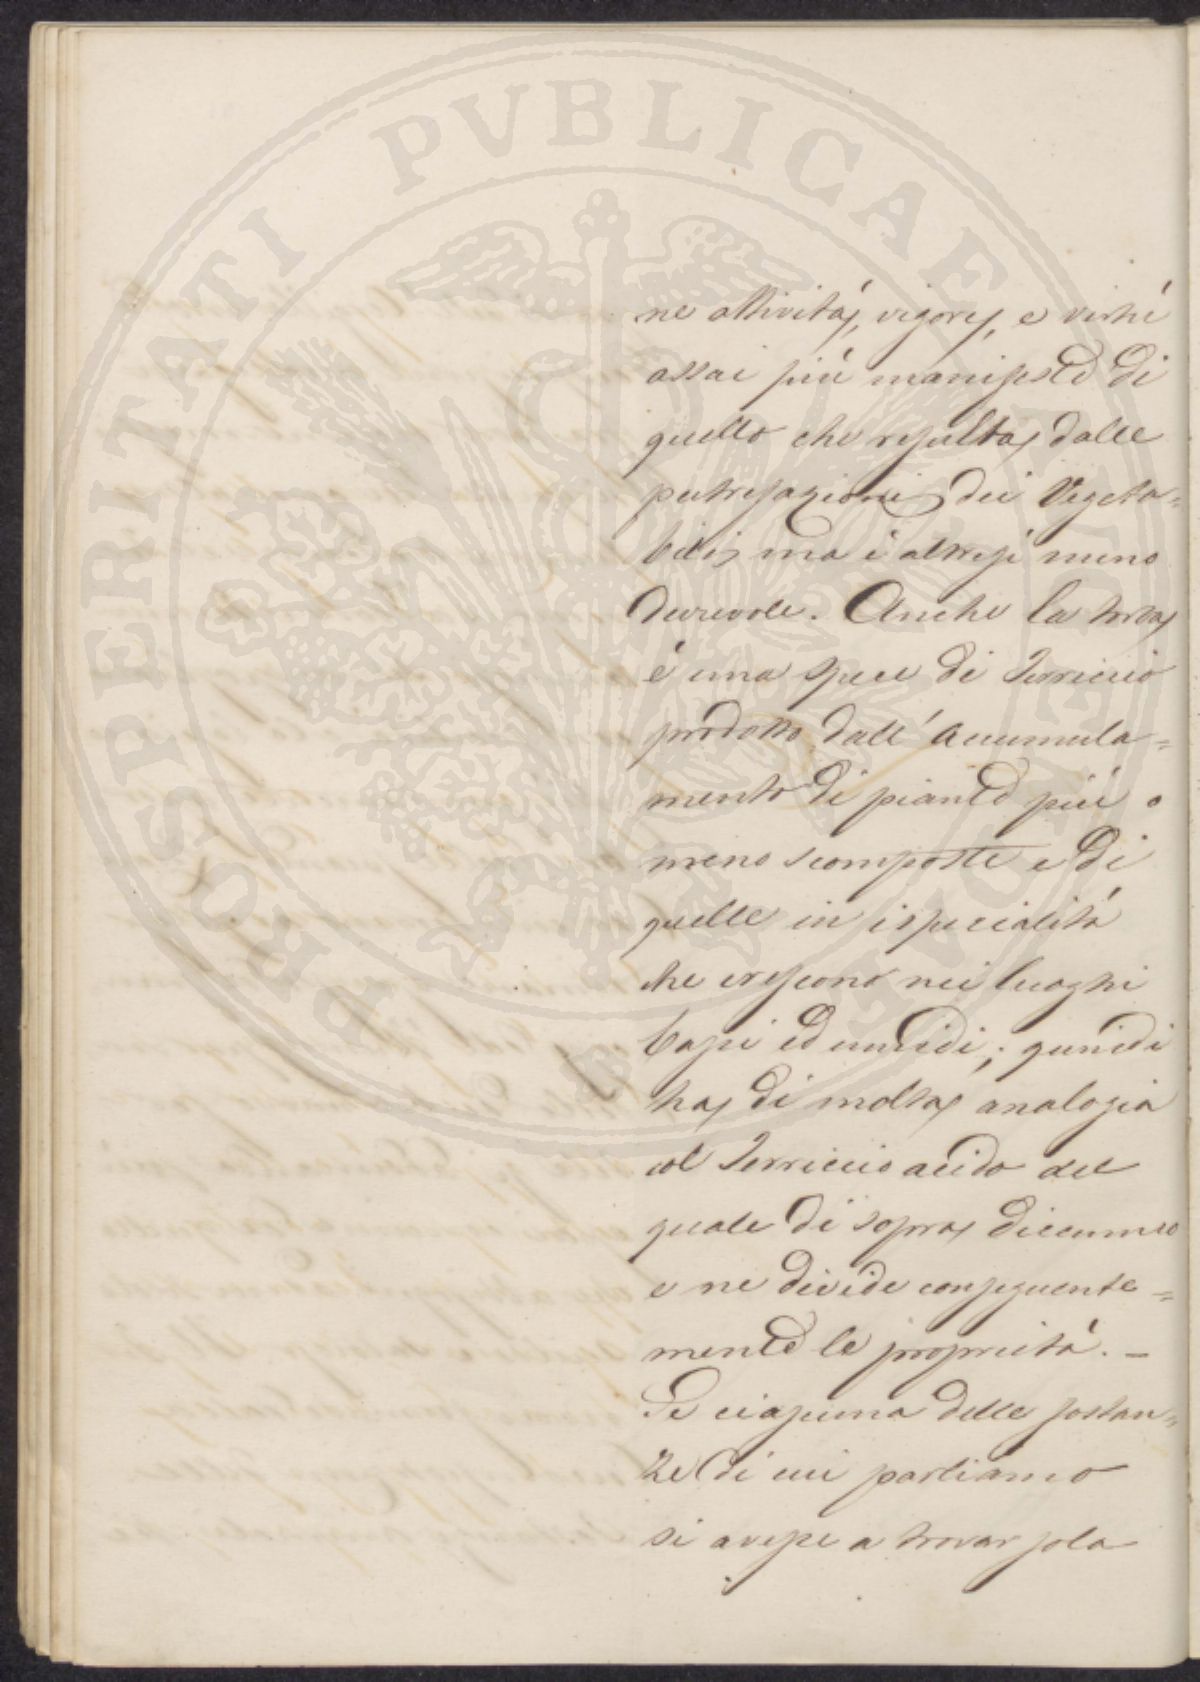 PROSPERITATI PVBLICAE
ne attività, vigore, e virtù
assai più manifeste di
quello che risulta dalle
putrefazioni dei Vegeta=
bili; ma è altresì meno
durevole. Anche la torba
é una spece di Terriccio
prodotto dall' Accumula=
mento di piante più o
meno scomposte e di
quelle in ispecialitá
che crescono nei luoghi
bassi ed umidi; quindi
ha di molta analogia
col Terriccio acido del
quale di sopra dicemmo
e ne divide conseguente=
mente le proprietá. –
Se ciascuna delle sostan=
ze di cui parliamo
si avesse a trovar sola